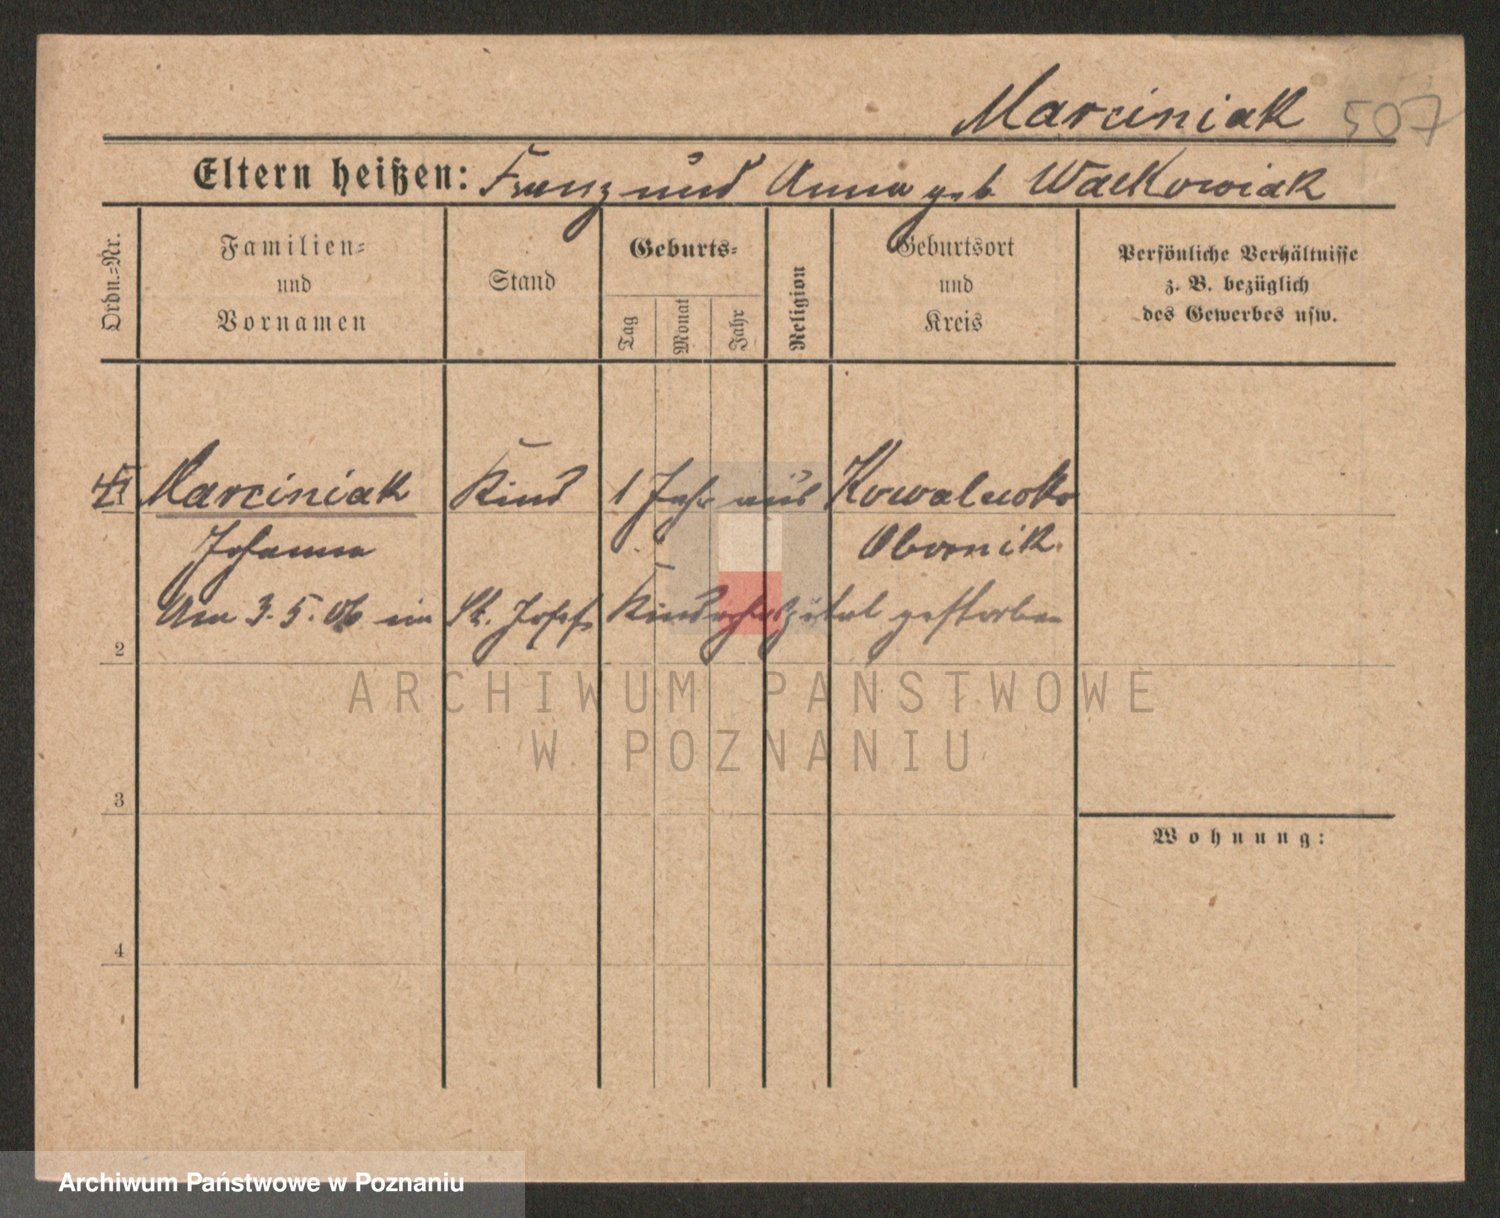 Marciniak 507
Eltern heißen: Franz und Anna geb Walkowiak
Ordn.=Nr.
Familien=
und
Vornamen
Stand
Geburts=
Tag
Monat
Jahr
Religion
Geburtsort
und
Kreis
Persönliche Verhältnisse
z. B. bezüglich
des Gewerbes usw.
Marciniak Kind 1 Jahr aus Kowalewko
Johanna Obornik.
Am 3.5.06 im St. Josefs Kinderhospital gestorben
2
ARCHIWUM PAŃSTWOWE
W POZNANIU
3
Wohnung:
4
Archiwum Państwowe w Poznaniu